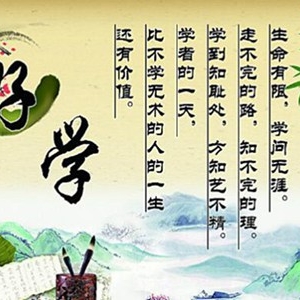 生命有限，学问无涯。
走不完的路，知不完的理。
学到知耻处，方知艺不精。
学者的一天，
比不学无术的人的一生
还有价值。
好
学